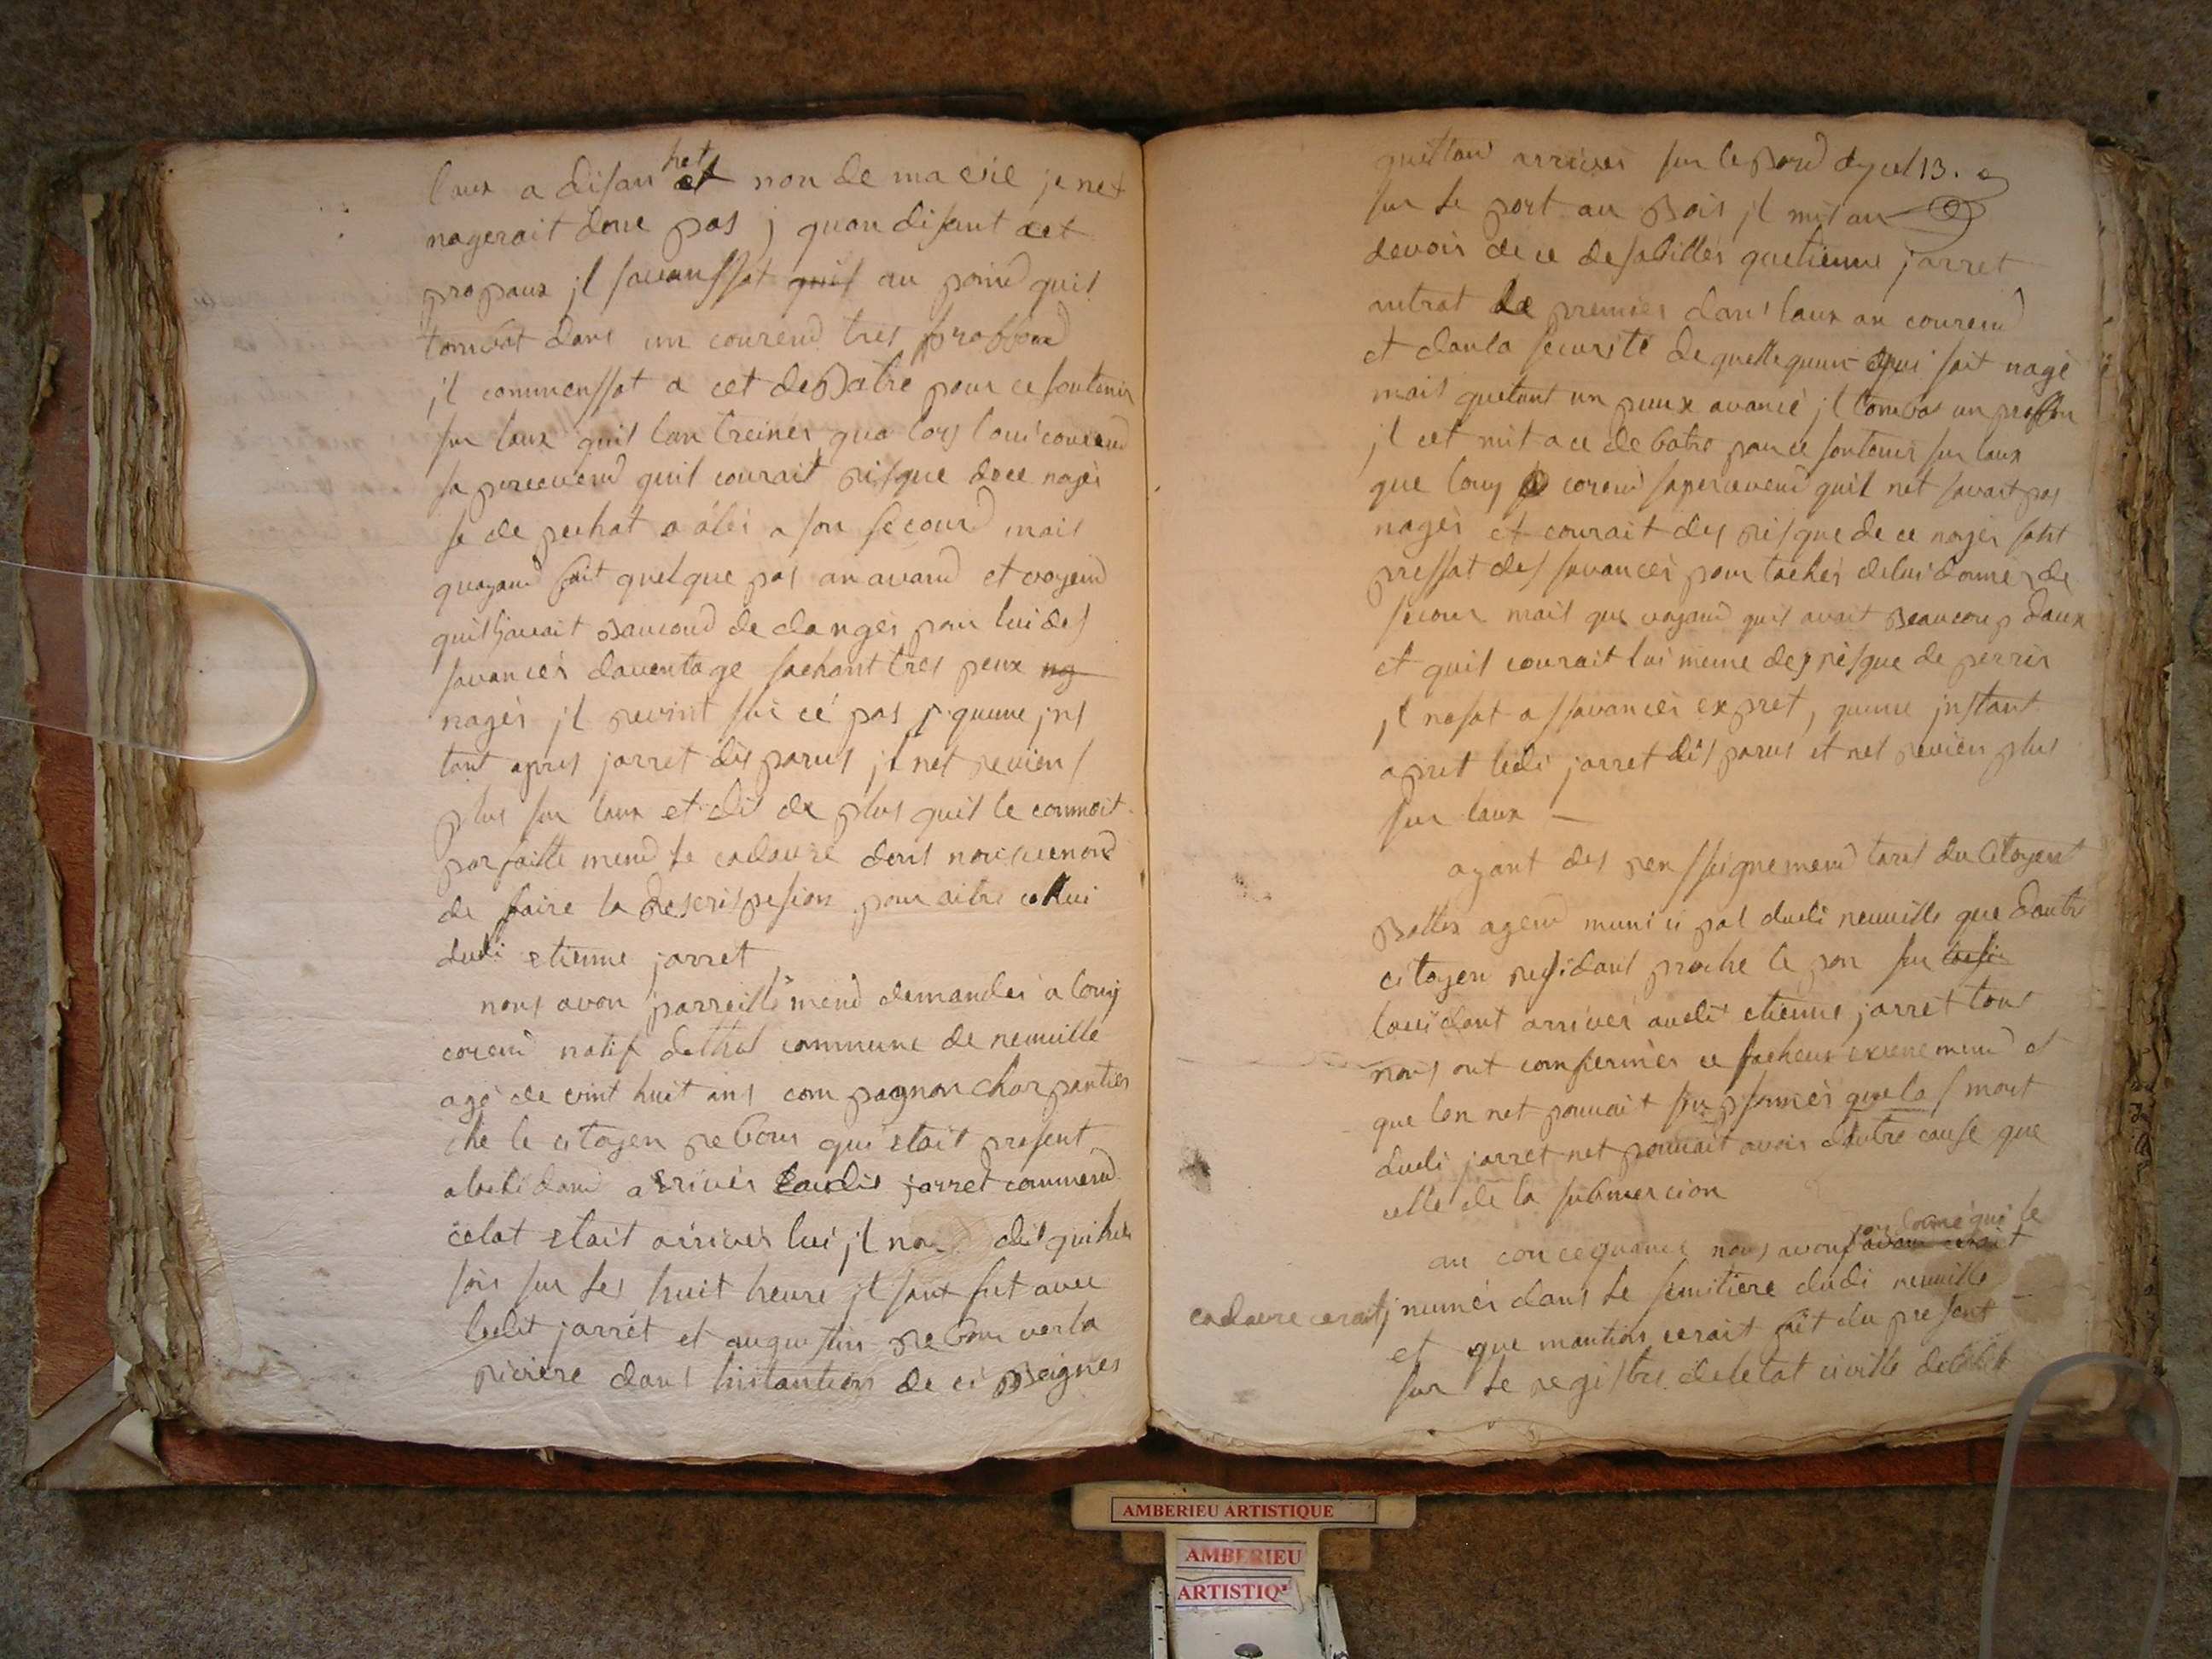 laux a disan het non de ma vie je net
nagerait donc pas j quan disant cet
propaux jl savanssat quil au poind quil
tombat dans un courend tres proffond
jl commenssat a cet debatre pour ce soutenir
sur laux quil lan treiner qua lors loui courend
sapercevend quil courait risque dece noyer
se de pechat a aler a son secourd mais
quayand fait quelque pas an avand et voyend
quil javait baucoud de danger pour lui des
savancer daventage sachant tres peux ng
nager jl revint sur cé pas j queune jns
tant apres jarret dis parus jl net reviens
plus sur laux et di de plus quil le connoit
parfaitte mend le cadavre dont nous venond
de faire la descrispesion pour aitre cellui
dudi etienne jarret
nous avon parreille mend demander a louy
corend natif commune de neuville
age de vint huit ans com pagnon charpantier
ché le citoyen rebour qui etait present
a laxidand arriver audit jarret commend
celat etait arriver lui jl nous dit qui hier
soir sur les huit heure jl sant fut avec
ledit jarret et augustin rebour ver la
riviere dans lintantion de ci beigner
quetand arriver sur le bord dycel 13.
sur le port au bois jl mit au
devoir de ce desabiller quetienne jarret
antrat le premier dans laux an courend
et dan la securité de quelle quun qui sait nagé
mais quetant un peux avancé jl tombat un proffon
jl cet mit a ce debatre pour ce soutenir sur laux
que louy corend sapercevend quil net savait pas
nager et courait des risque de ce noyer sant
pressat des savancer pour tacher delui donner de
secour mais que voyand quil avait beaucoup daux
et quil courait lui meme des risque de perrir
jl nosat a ssavancer expret, queune jnstant
apret ledi jarret disparus et net revien plus
sur laux
ayant des ren sseignemend tant du Citoyent
agend muni ci pal dudi neuville que dautre
citoyen residant proche le pon sur
laxidant arriver audit etienne jarret tous
nous ont confermer ce facheux evenemend et
que lon net pouvait soupsonner que las mort
dudi jarret net pouvait avoir dautre cause que
celle de la submercion
an concequance nous avons ordonné que le
cadavre cerait jnumer dans le semitiere dudi neuville
et que mantion cerait fait du present
sur le registre deletat civille
AMBERIEU ARTISTIQUE
AMBERIEU
ARTISTIQ